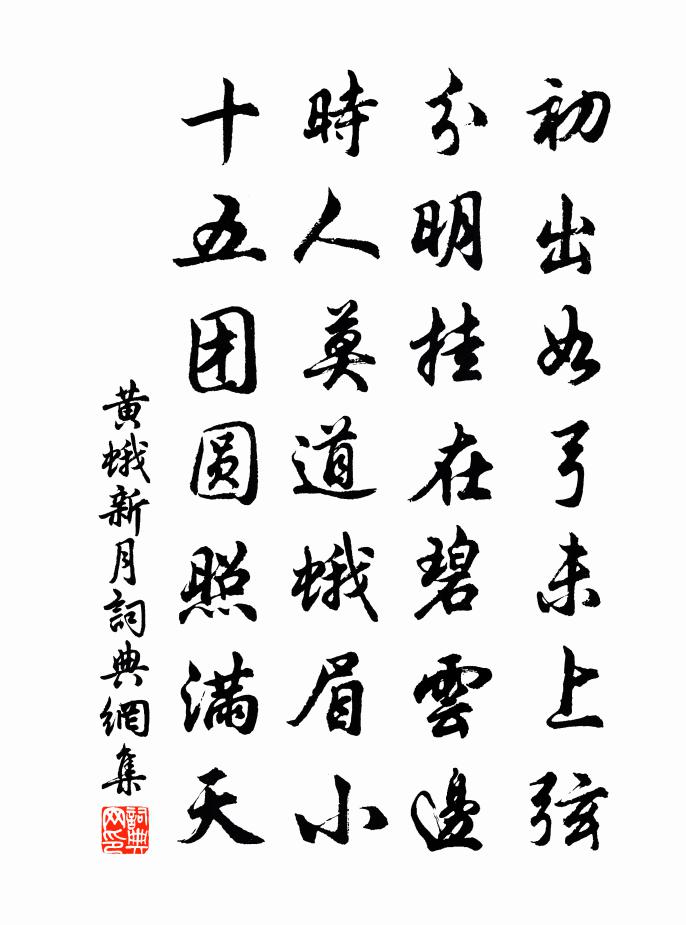 初出如弓未上弦
分明挂在碧雲邊
時人莫道蛾眉小
十五团圆照满天
黄蛾新月詞典網集
詞典网印